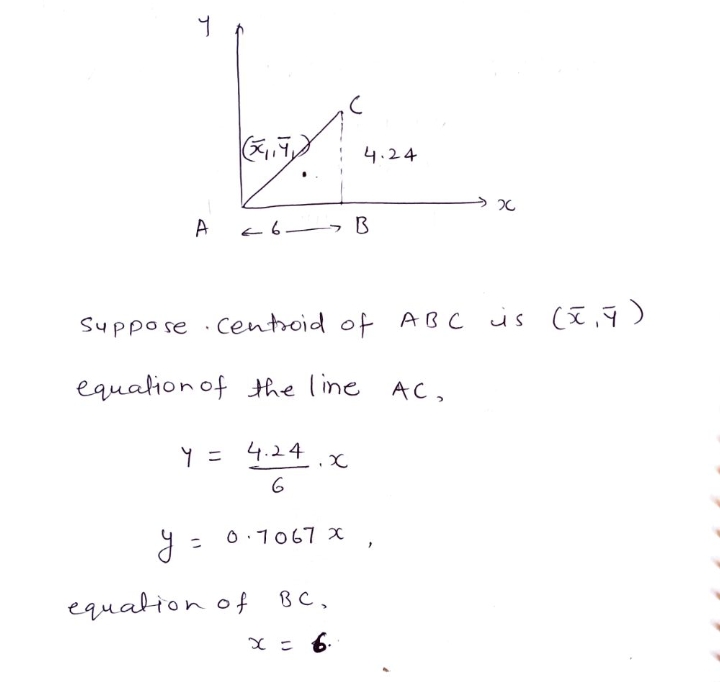 y
C
(x̄₁,ȳ₁)
4.24
x
A ← 6 → B
Suppose . centroid of ABC is (x̄,ȳ)
equation of the line AC,
y = 4.24/6 . x
y = 0.7067 x ,
equation of BC,
x = 6.